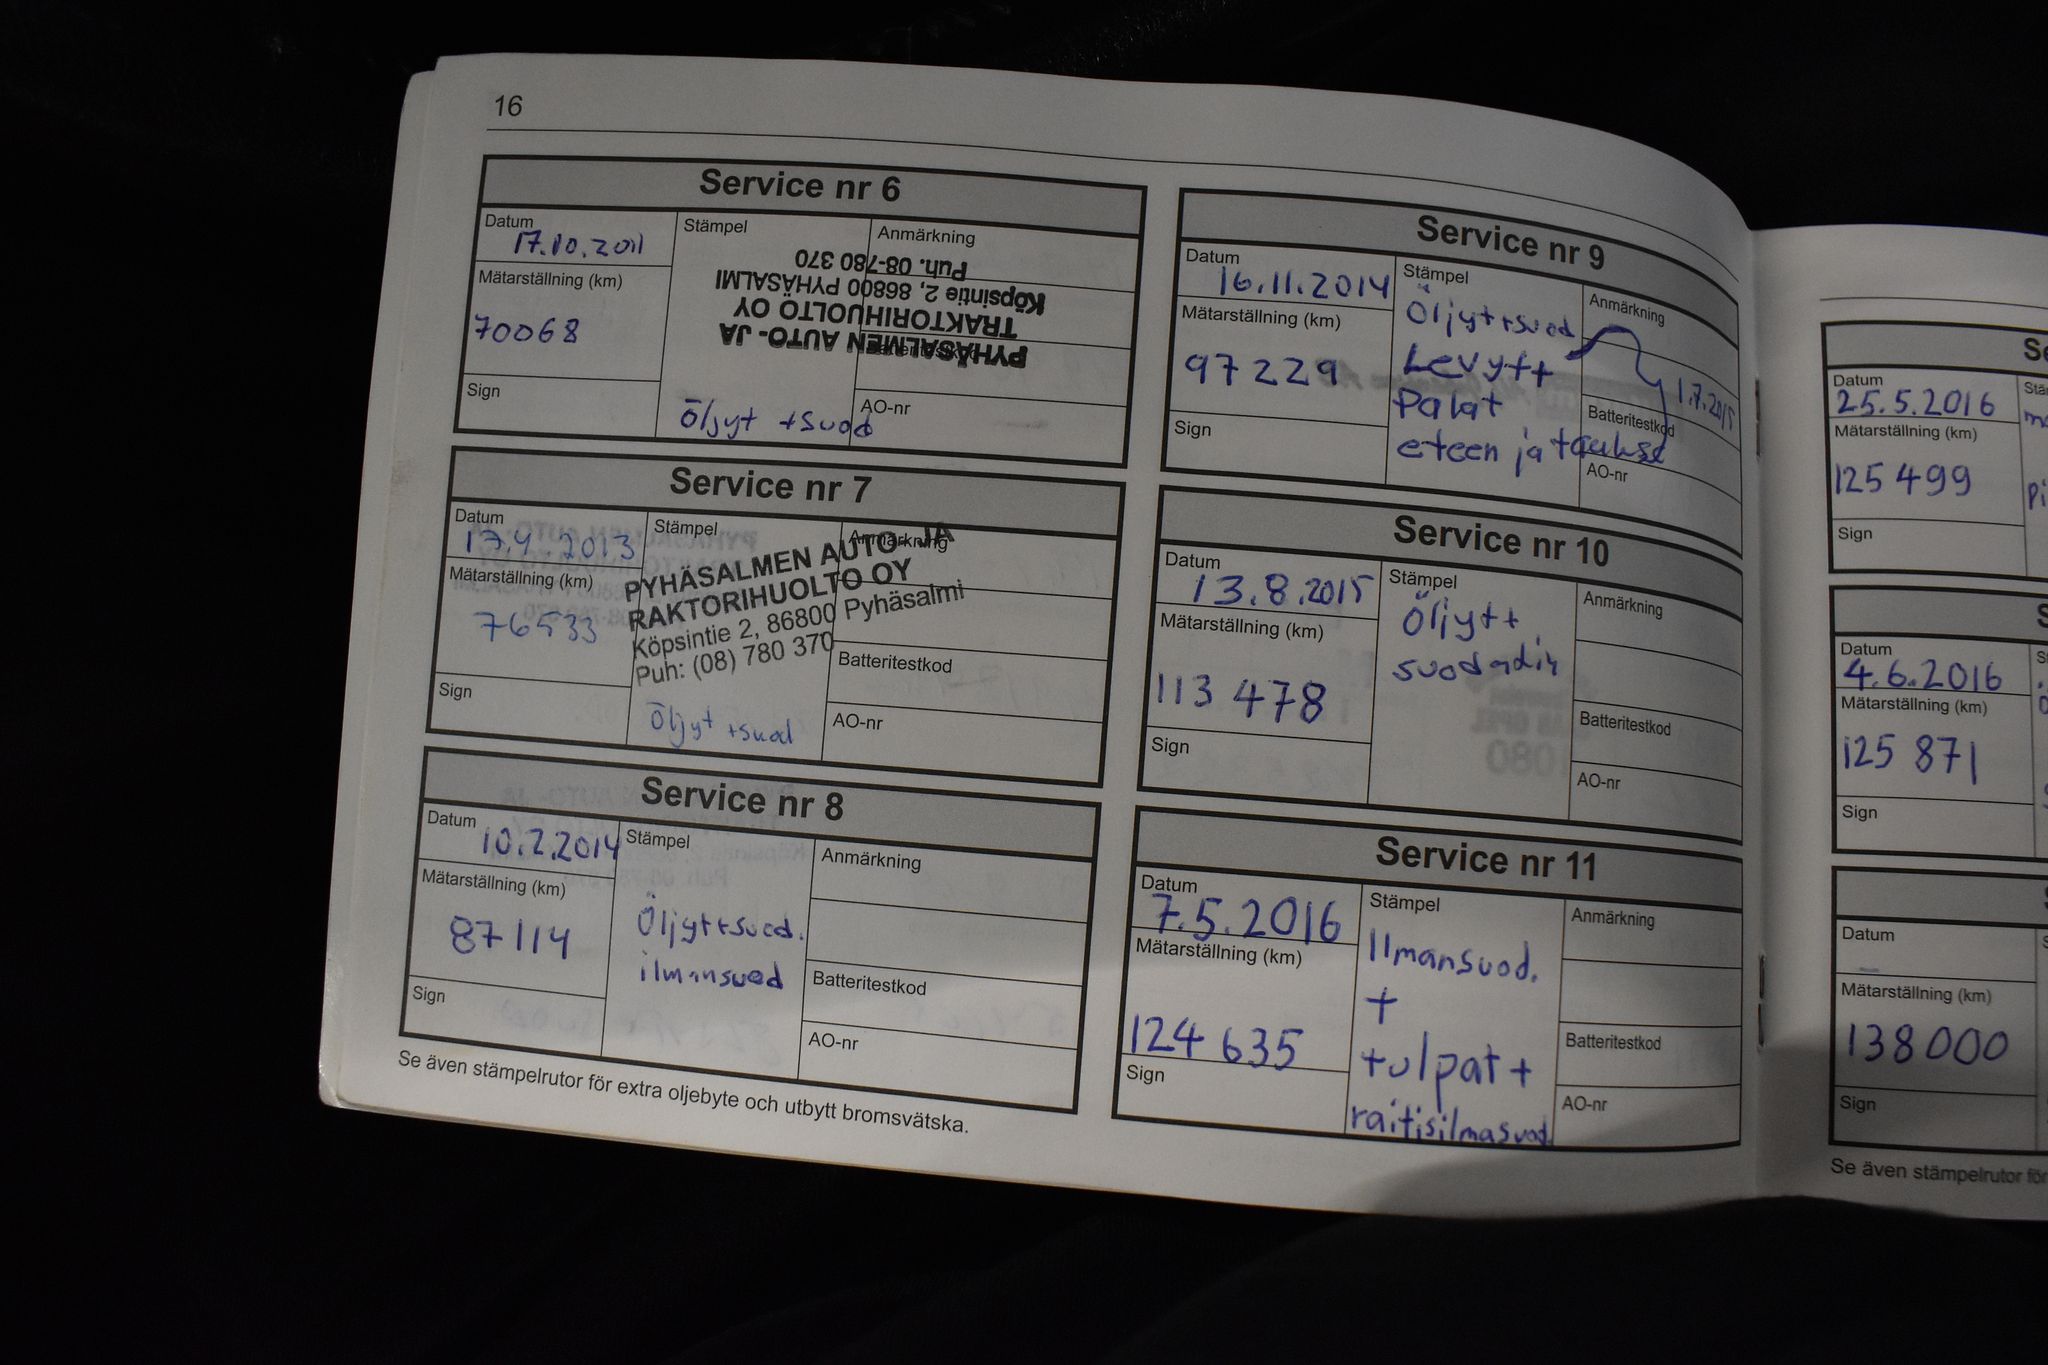 16
Service nr 6
Datum
17.10.2011
Mätarställning (km)
70068
Sign
Stämpel
Anmärkning
PYHÄSALMEN AUTO- JA
TRAKTORIHUOLTO OY
Köpsintie 2, 86800 PYHÄSALMI
Puh. 08-780 370
Öljyt +suod
AO-nr
Service nr 7
Datum
17.4 2013
Mätarställning (km)
76533
Sign
Stämpel
Anmärkning
PYHÄSALMEN AUTO- JA
RAKTORIHUOLTO OY
Köpsintie 2, 86800 Pyhäsalmi
Puh: (08) 780 370
Öljyt +suod
Batteritestkod
AO-nr
Service nr 8
Datum
10.2.2014
Mätarställning (km)
87114
Sign
Stämpel
Öljyt+suod.
ilmansuod
Anmärkning
Batteritestkod
AO-nr
Se även stämpelrutor för extra oljebyte och utbytt bromsvätska.
Service nr 9
Datum
16.11.2014
Mätarställning (km)
97229
Sign
Stämpel
Öljyt+suod
Levyt+
Palat
eteen ja taakse
Anmärkning
1.7.2015
Batteritestkod
AO-nr
Service nr 10
Datum
13.8.2015
Mätarställning (km)
113 478
Sign
Stämpel
Öljyt+
Anmärkning
Batteritestkod
AO-nr
Service nr 11
Datum
7.5.2016
Mätarställning (km)
124 635
Sign
Stämpel
Ilmansuod.
+
tulpat+
raitisilmasuod.
Anmärkning
Batteritestkod
AO-nr
Se
Datum
25.5.2016
Mätarställning (km)
125 499
Sign
Datum
4.6.2016
Mätarställning (km)
125 871
Sign
Datum
Mätarställning (km)
138000
Sign
Se även stämpelrutor för